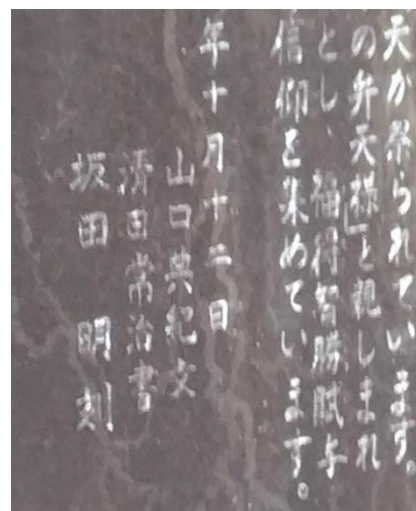 天が祭られています。
の弁天様」と親しまれ
とし 福得智勝賦与
信仰を集めています。
年十月十二日
山口英紀文
清田常治書
坂田 明刻